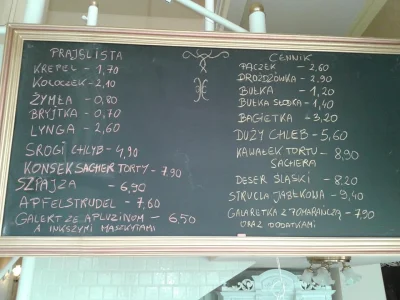 PRAJSLISTA
KREPEL - 1,70
KOŁOCZEK - 2,10
ŻYMŁA - 0,80
BRYJTKA - 0,70
LYNGA - 2,60
SROGI CHLYB - 4,90
KONSEK SACHER TORTY - 7,90
SZPAJZA - 6,90
APFELSTRUDEL - 7,60
GALERT ZE APLUZINOM - 6,50
A INKSZYMI MASZKYTAMI
CENNIK
PĄCZEK - 2,60
DROŻDŻÓWKA - 2,90
BUŁKA - 1,20
BUŁKA SŁODKA - 1,40
BAGIETKA - 3,20
DUŻY CHLEB - 5,60
KAWAŁEK TORTU - 8,90
SACHERA
DESER ŚLĄSKI - 8,20
STRUCLA JABŁKOWA - 9,40
GALARETKA Z POMARAŃCZĄ - 7,90
ORAZ DODATKAMI